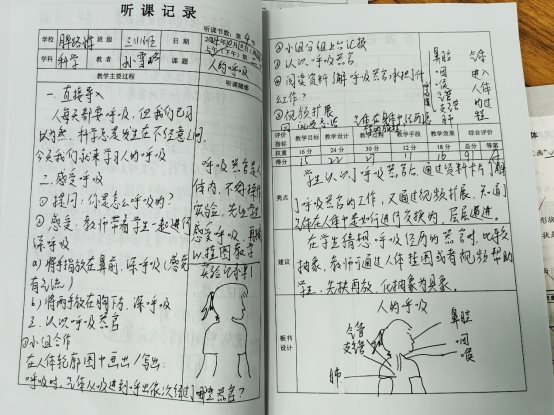 听课记录
听课节数：第4节
学校 解路街 班级 三(1)班 日期
学科 科学 教者 孙雪 课题 人的呼吸
教学主要过程
听课随感
一.直接导入
人每天都要呼吸，但我们已习
以为然，科学总是发生在不经意间，
今天我们就来学习人的呼吸
二.感受呼吸
①提问：你是怎么呼吸的？
②感受：教师带着学生一起进行
深呼吸
a)将手指放在鼻前，深呼吸(感觉
有气流)
b)将两手放在胸下方，深呼吸
三.认识呼吸器官
①小组合作
在人体轮廓图中画出/写出：
呼吸时，气体从吸进到呼出依次经过了哪些器官？
呼吸器官是
体内，不好操作
实验，先让学生
感受呼吸，再
以挂图教学
②小组分组上台汇报
③认识呼吸器官
④阅读资料了解呼吸器官承担了什
么工作？
⑤视频扩展
鼻腔
咽
喉
气管
支气管
肺
气体
进入
人体
的过
程
评价指标 教学目标 教学设计 教学过程 教学手段 教学效果 综合评价
权重 16分 24分 30分 12分 18分 总分 等第
得分 15 22 11 16 91 A
亮点
学生认识了呼吸器官后，通过资料卡片了解
了呼吸器官的工作，又通过视频扩展，知道了
气体在人体中是如何进行交换的，层层递进。
建议
在学生猜想呼吸经历的器官时，比较
抽象，教师可通过人体挂图或者视频帮助
学生，先扶再放，化抽象为具象。
板书设计
人的呼吸
气管
支气管
肺
鼻腔
咽
喉